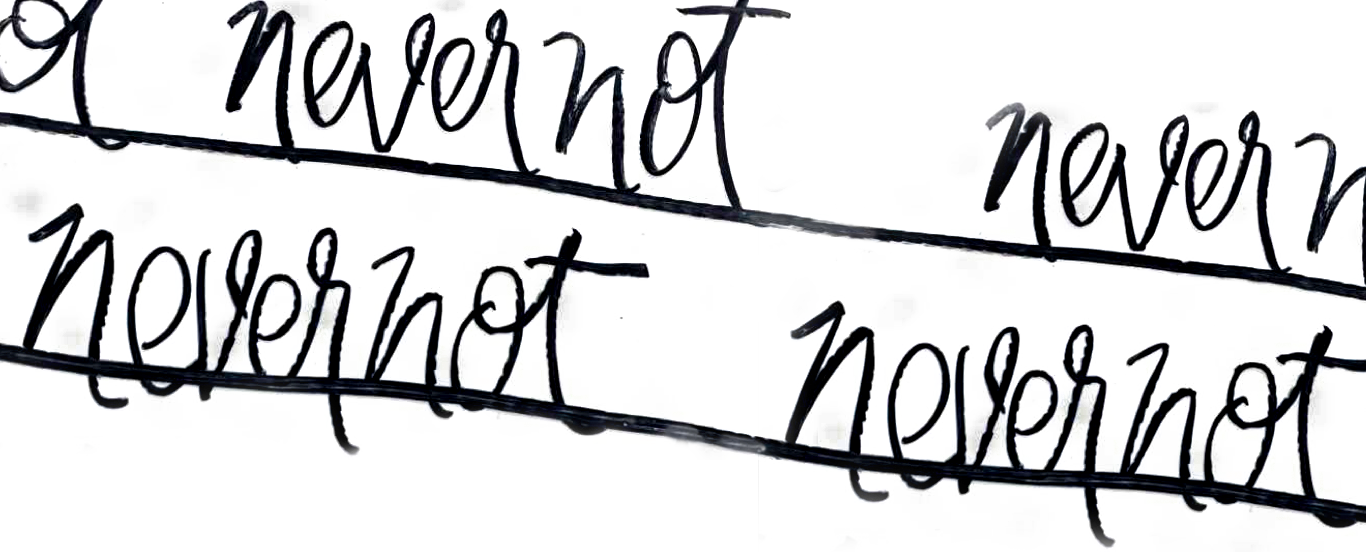 never not never
never not never not